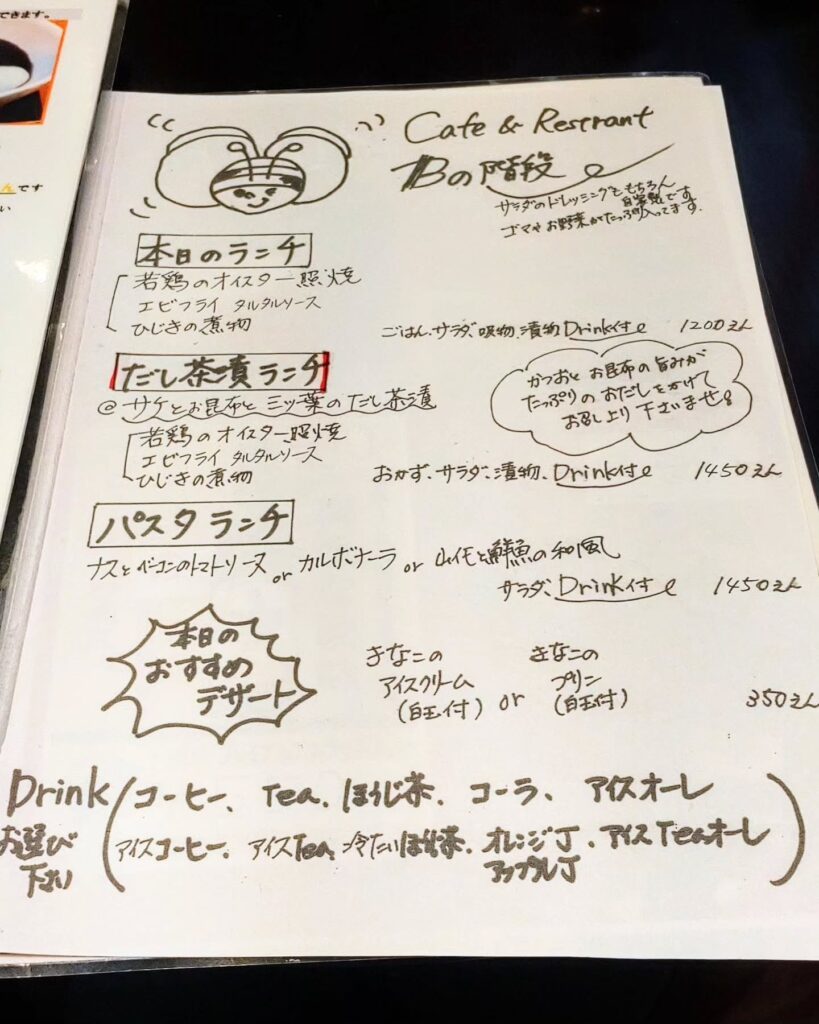 できます。
んです
Cafe & Restrant
Bの階段
サラダのドレッシングももちろん
自家製です
ゴマや お野菜がたっぷり入ってます.
本日のランチ
若鶏のオイスター照焼
エビフライ タルタルソース
ひじきの煮物
ごはん、サラダ、吸物、漬物、Drink付 1200えん
だし茶漬ランチ
@ サケとお昆布と三ッ葉のだし茶漬
かつおと お昆布の旨みが
たっぷりの おだしをかけて
お召し上り 下さいませ!
若鶏のオイスター照焼
エビフライ タルタルソース
ひじきの煮物
おかず、サラダ、漬物、Drink付 1450えん
パスタランチ
ナスとベーコンのトマトソース or カルボナーラ or 山イモと鮮魚の和風
サラダ、Drink付 1450えん
本日の
おすすめ
デザート
きなこの
アイスクリーム
(白玉付) or
きなこの
プリン
(白玉付)
350えん
Drink
お選び
下さい
コーヒー、Tea、ほうじ茶、コーラ、アイスオーレ
アイスコーヒー、アイスTea、冷たいほうじ茶、オレンジJ、アイスTeaオーレ
アップルJ